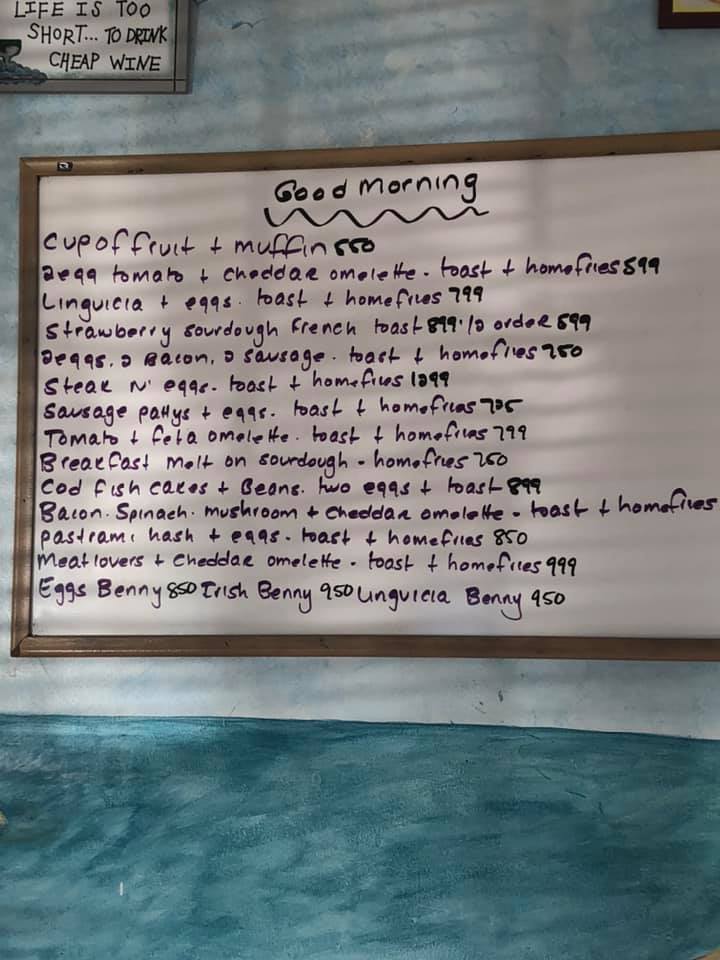 LIFE IS TOO
SHORT... TO DRINK
CHEAP WINE
Good Morning
Cup of fruit + muffin 550
2egg tomato + cheddar omelette - toast + homefries 599
Linguicia + eggs. toast + homefries 799
Strawberry sourdough French toast 899 1/2 order 599
2eggs, 2 Bacon, 2 sausage - toast + homefries 750
Steak N' eggs - toast + homefries 1299
Sausage pattys + eggs. toast + homefries 725
Tomato + feta omelette. toast + homefries 799
Breakfast melt on sourdough - homefries 750
Cod fish cakes + Beans. two eggs + toast 899
Bacon. Spinach. mushroom + cheddar omelette - toast + homefries
pastrami hash + eggs - toast + homefries 850
Meatlovers + Cheddar omelette - toast + homefries 999
Eggs Benny 850 Irish Benny 950 Linguicia Benny 950